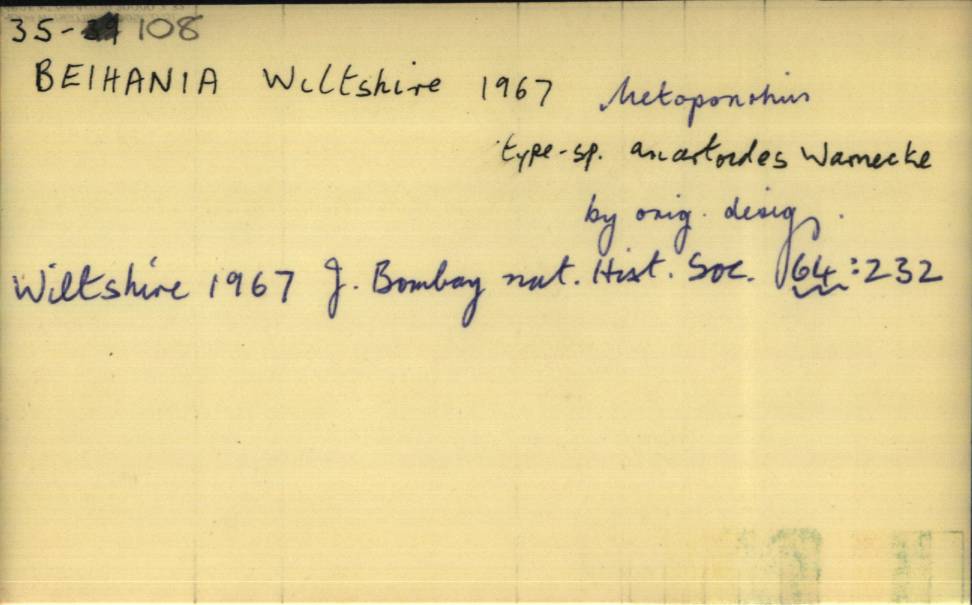 35- 108
BEIHANIA Wiltshire 1967 Metoponrhis
type-sp. anartoides Warnecke
by orig. desig.
Wiltshire 1967 J. Bombay nat. Hist. Soc. 64:232